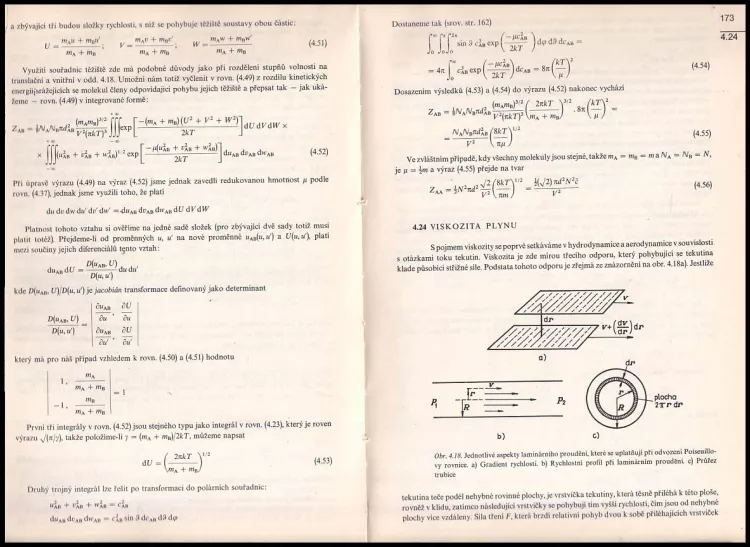 a zbývající tři budou složky rychlosti, s níž se pohybuje těžiště soustavy obou částic:
U = (m_A u + m_B u')/(m_A + m_B) ; V = (m_A v + m_B v')/(m_A + m_B) ; W = (m_A w + m_B w')/(m_A + m_B) (4.51)
Využití souřadnic těžiště zde má podobné důvody jako při rozdělení stupňů volnosti na
translační a vnitřní v odd. 4.18. Umožní nám totiž vyčlenit v rovn. (4.49) z rozdílu kinetických
energií srážejících se molekul členy odpovídající pohybu jejich těžiště a přepsat tak — jak uká-
žeme — rovn. (4.49) v integrované formě:
Z_AB = ½N_A N_B πd²_AB (m_A m_B)^{3/2}/(V²(πkT)³) ∭_{−∞}^{+∞} exp[−(m_A + m_B)(U² + V² + W²)/2kT] dU dV dW ×
× ∭_{−∞}^{+∞} (u²_AB + v²_AB + w²_AB)^{1/2} exp[−μ(u²_AB + v²_AB + w²_AB)/2kT] du_AB dv_AB dw_AB (4.52)
Při úpravě výrazu (4.49) na výraz (4.52) jsme jednak zavedli redukovanou hmotnost μ podle
rovn. (4.37), jednak jsme využili toho, že platí
du dv dw du' dv' dw' = du_AB dv_AB dw_AB dU dV dW
Platnost tohoto vztahu si ověříme na jedné sadě složek (pro zbývající dvě sady totiž musí
platit totéž). Přejdeme-li od proměnných u, u' na nové proměnné u_AB(u, u') a U(u, u'), platí
mezi součiny jejich diferenciálů tento vztah:
du_AB dU = D(u_AB, U)/D(u, u') du du'
kde D(u_AB, U)/D(u, u') je jacobián transformace definovaný jako determinant
D(u_AB, U)/D(u, u') = | ∂u_AB/∂u , ∂U/∂u |
| ∂u_AB/∂u' , ∂U/∂u' |
který má pro náš případ vzhledem k rovn. (4.50) a (4.51) hodnotu
| 1, m_A/(m_A + m_B) |
| −1, m_B/(m_A + m_B) | = 1
První tři integrály v rovn. (4.52) jsou stejného typu jako integrál v rovn. (4.23), který je roven
výrazu √(π/γ), takže položíme-li γ = (m_A + m_B)/2kT, můžeme napsat
dU = (2πkT/(m_A + m_B))^{1/2} (4.53)
Druhý trojný integrál lze řešit po transformaci do polárních souřadnic:
u²_AB + v²_AB + w²_AB = c²_AB
du_AB dv_AB dw_AB = c²_AB sin ϑ dc_AB dϑ dφ
173
4.24
Dostaneme tak (srov. str. 162)
∫_0^∞ ∫_0^π ∫_0^{2π} sin ϑ c³_AB exp(−μc²_AB/2kT) dφ dϑ dc_AB =
= 4π ∫_0^∞ c³_AB exp(−μc²_AB/2kT) dc_AB = 8π (kT/μ)² (4.54)
Dosazením výsledků (4.53) a (4.54) do výrazu (4.52) nakonec vychází
Z_AB = ½N_A N_B πd²_AB (m_A m_B)^{3/2}/(V²(πkT)³) (2πkT/(m_A + m_B))^{3/2} . 8π (kT/μ)² =
= N_A N_B πd²_AB/V² (8kT/πμ)^{1/2} (4.55)
Ve zvláštním případě, kdy všechny molekuly jsou stejné, takže m_A = m_B = m a N_A = N_B = N,
je μ = ½m a výraz (4.55) přejde na tvar
Z_AA = ½N²πd² √2/V² (8kT/πm)^{1/2} = ½(√2) πd²N²c̄/V² (4.56)
4.24 VISKOZITA PLYNU
S pojmem viskozity se poprvé setkáváme v hydrodynamice a aerodynamice v souvislosti
s otázkami toku tekutin. Viskozita je zde mírou třecího odporu, který pohybující se tekutina
klade působící střižné síle. Podstata tohoto odporu je zřejmá ze znázornění na obr. 4.18a). Jestliže
v
dr
v+(dv/dr)dr
a)
P₁
v
r
R
P₂
b)
dr
r
R
plocha
2πr dr
c)
Obr. 4.18. Jednotlivé aspekty laminárního proudění, které se uplatňují při odvození Poiseuillo-
vy rovnice. a) Gradient rychlosti. b) Rychlostní profil při laminárním proudění. c) Průřez
trubice
tekutina teče podél nehybné rovinné plochy, je vrstvička tekutiny, která těsně přiléhá k této ploše,
rovněž v klidu, zatímco následující vrstvičky se pohybují tím vyšší rychlostí, čím jsou od nehybné
plochy více vzdáleny. Síla tření F, která brzdí relativní pohyb dvou k sobě přiléhajících vrstviček